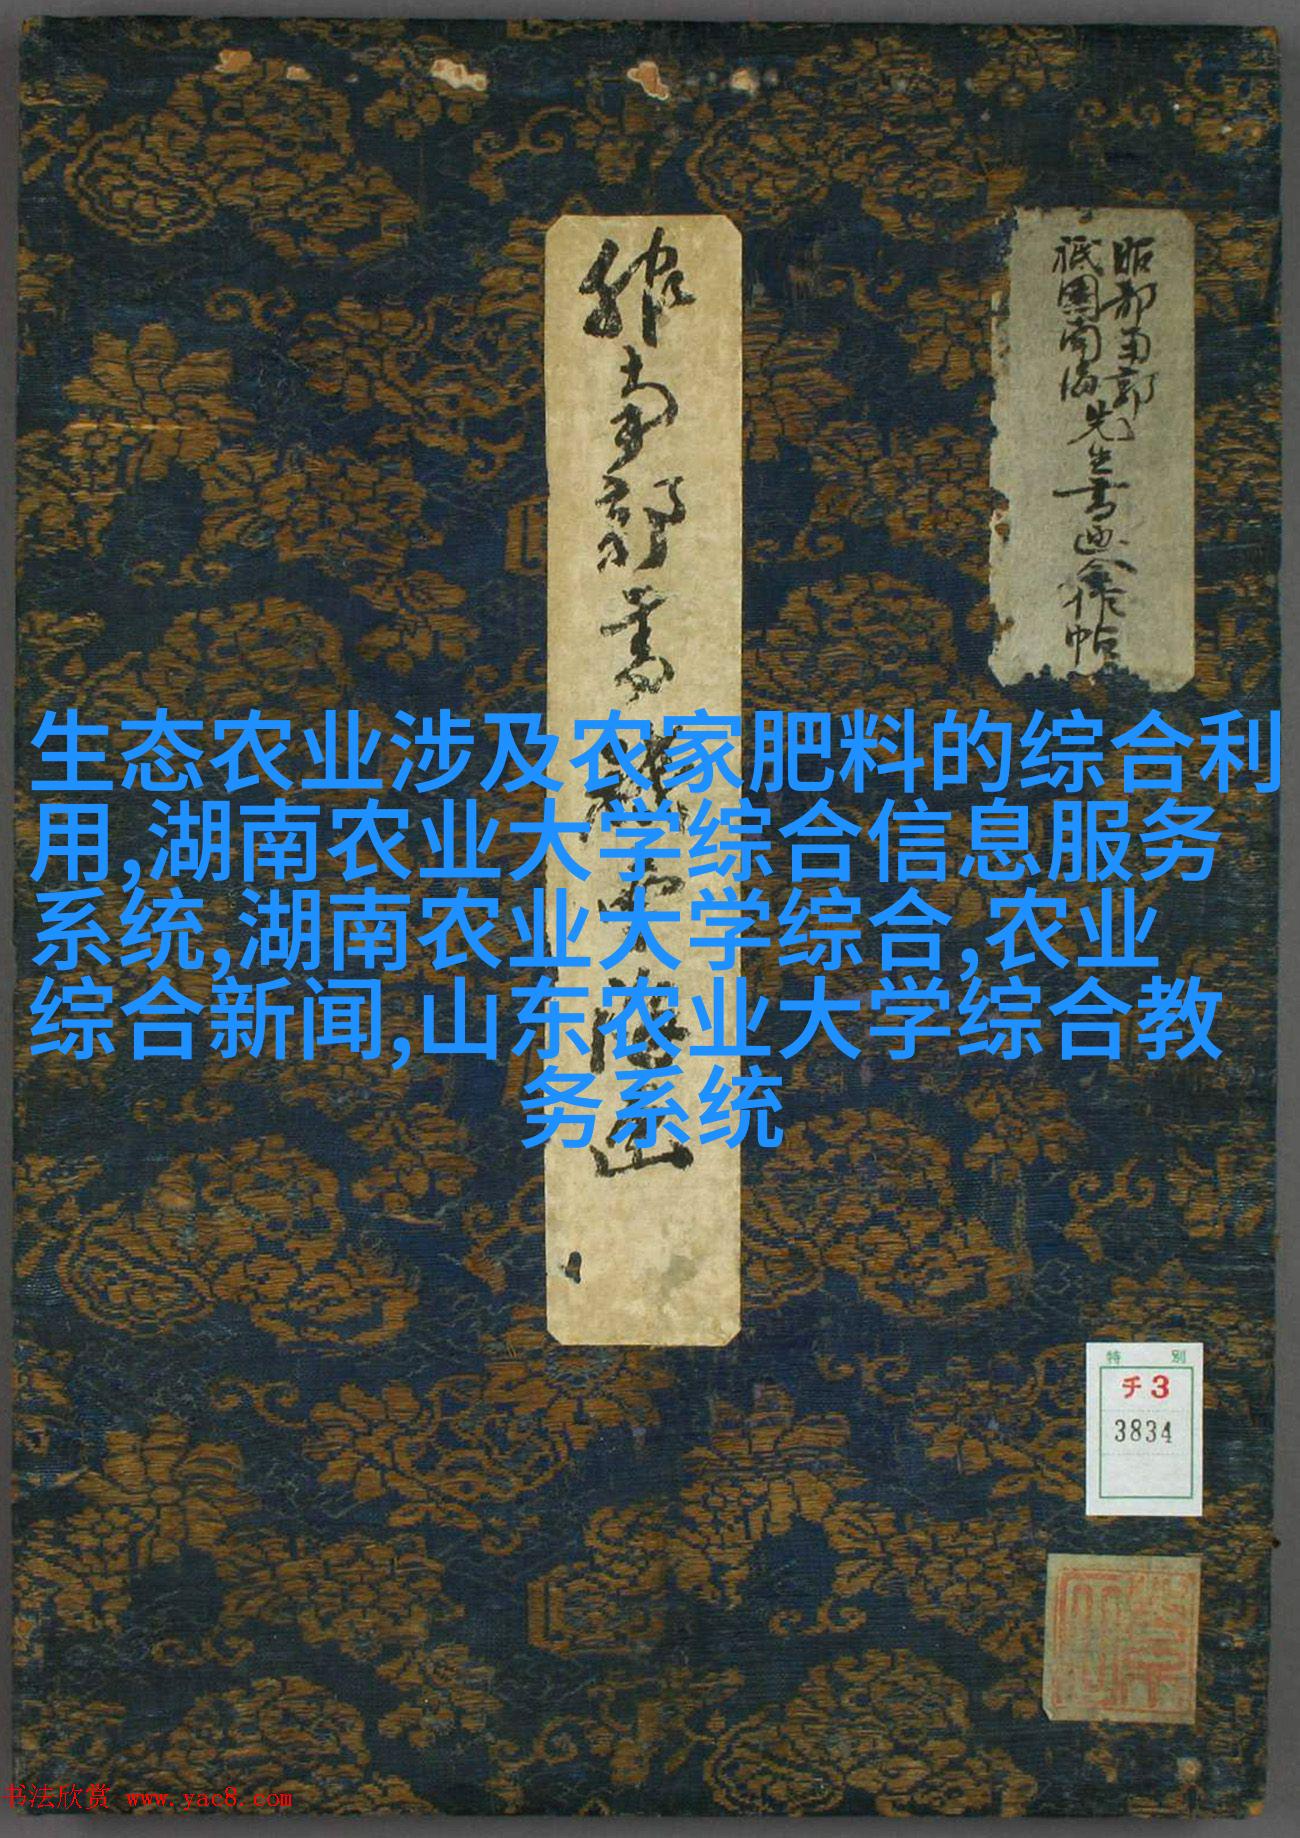 服南郭書祇南海画
服部南郭
祇園南海先生書画合作帖
生态农业涉及农家肥料的综合利
用,湖南农业大学综合信息服务
系统,湖南农业大学综合,农业
综合新闻,山东农业大学综合教
务系统
特 别
チ3
3834
书法欣赏 www.yac8.com